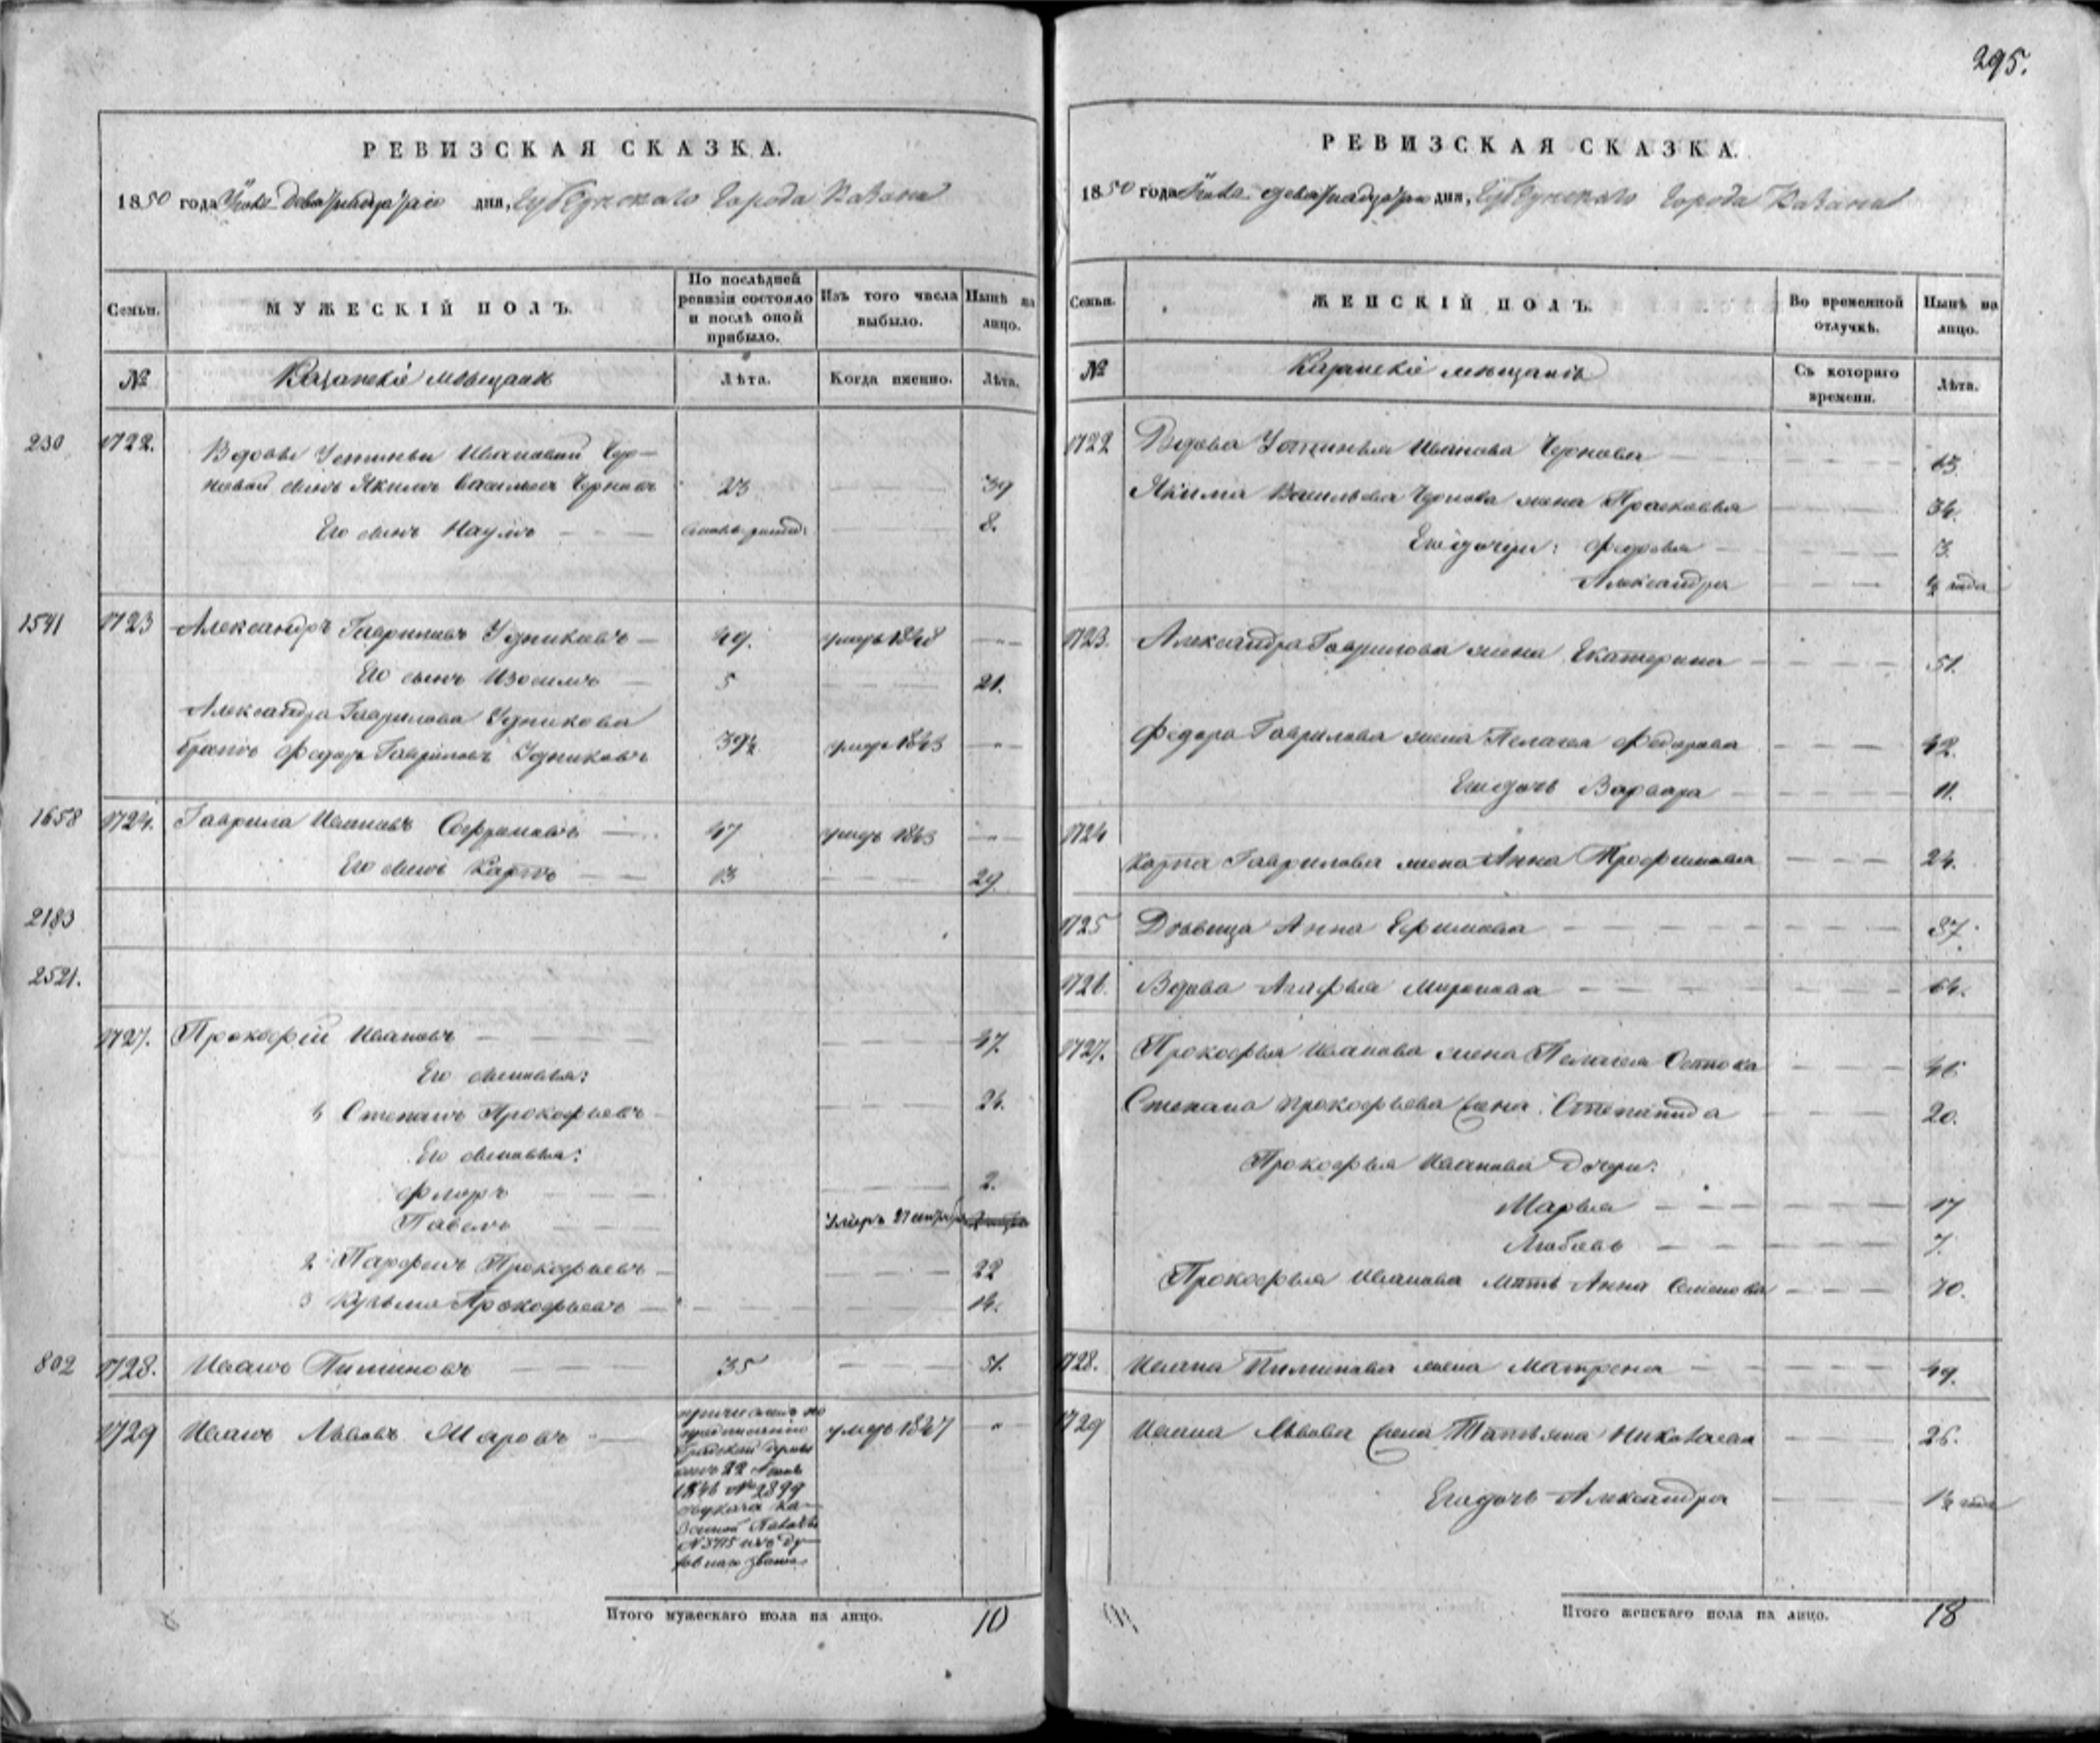 РЕВИЗСКАЯ СКАЗКА.
1850 года Июля двенадцатаго дня, Губернскаго Города Казани
Семьи.
МУЖЕСКІЙ ПОЛЪ.
По послѣдней ревизіи состояло и послѣ оной прибыло.
Изъ того числа выбыло.
Нынѣ на лицо.
№
Казанскіе мѣщане
Лѣта.
Когда именно.
Лѣта.
230 1722. Вдовы Устиньи Ивановой Чер-
новой сынъ Якимъ Васильевъ Черновъ 23 39
Его сынъ Наумъ 8.
1541 1723 Александръ Гавриловъ Удниковъ 49. умеръ 1848
Его сынъ Изосимъ 5 21.
Александра Гаврилова Удникова
братъ Федоръ Гавриловъ Удниковъ 39½ умеръ 1843
1658 1724. Гаврила Ивановъ Софроновъ 47 умеръ 1843
Его сынъ Карпъ 13 29.
2183
2521.
1727. Прокофій Ивановъ 47.
Его сыновья:
1 Степанъ Прокофьевъ 24.
Его сыновья:
Флоръ 2.
Павелъ Умеръ 27 сентября
2 Парфенъ Прокофьевъ 22
3 Кузьма Прокофьевъ 14.
802 1728. Иванъ Пиминовъ 35 51.
1729 Иванъ Львовъ Маровъ умеръ 1847
причисленъ по
предписанію
Градской думы
отъ 22
1846 № 2899
указа Ка-
зенной Палаты
№ 5715 изъ ду-
ховнаго званія
Итого мужескаго пола на лицо. 10
295.
РЕВИЗСКАЯ СКАЗКА.
1850 года Июля двенадцатаго дня, Губернскаго Города Казани
Семьи.
ЖЕНСКІЙ ПОЛЪ.
Во временной отлучкѣ.
Нынѣ на лицо.
№
Казанскіе мѣщане
Съ котораго времени.
Лѣта.
1722 Вдова Устинья Иванова Чернова 63.
Якима Васильева Чернова жена Прасковья 34.
Его дочери: Федосья 3.
Александра ½ года
1723. Александра Гаврилова жена Екатерина 51.
Федора Гаврилова жена Пелагея Федорова 42.
Его дочь Варвара 11.
1724
Карпа Гаврилова жена Анна Трофимова 24.
1725 Дѣвица Анна Ефимова 37.
1726. Вдова Агафья Миронова 64.
1727. Прокофья Иванова жена Пелагея 46
Степана Прокофьева жена Степанида 20.
Прокофья Иванова дочери:
Марья 17
Любовь 7.
Прокофья Иванова мать Анна Семенова 70.
1728. Ивана Пиминова жена Матрена 49.
1729 Ивана Львова жена Татьяна Николаева 26.
Его дочь Александра 1½ года
Итого женскаго пола на лицо. 18